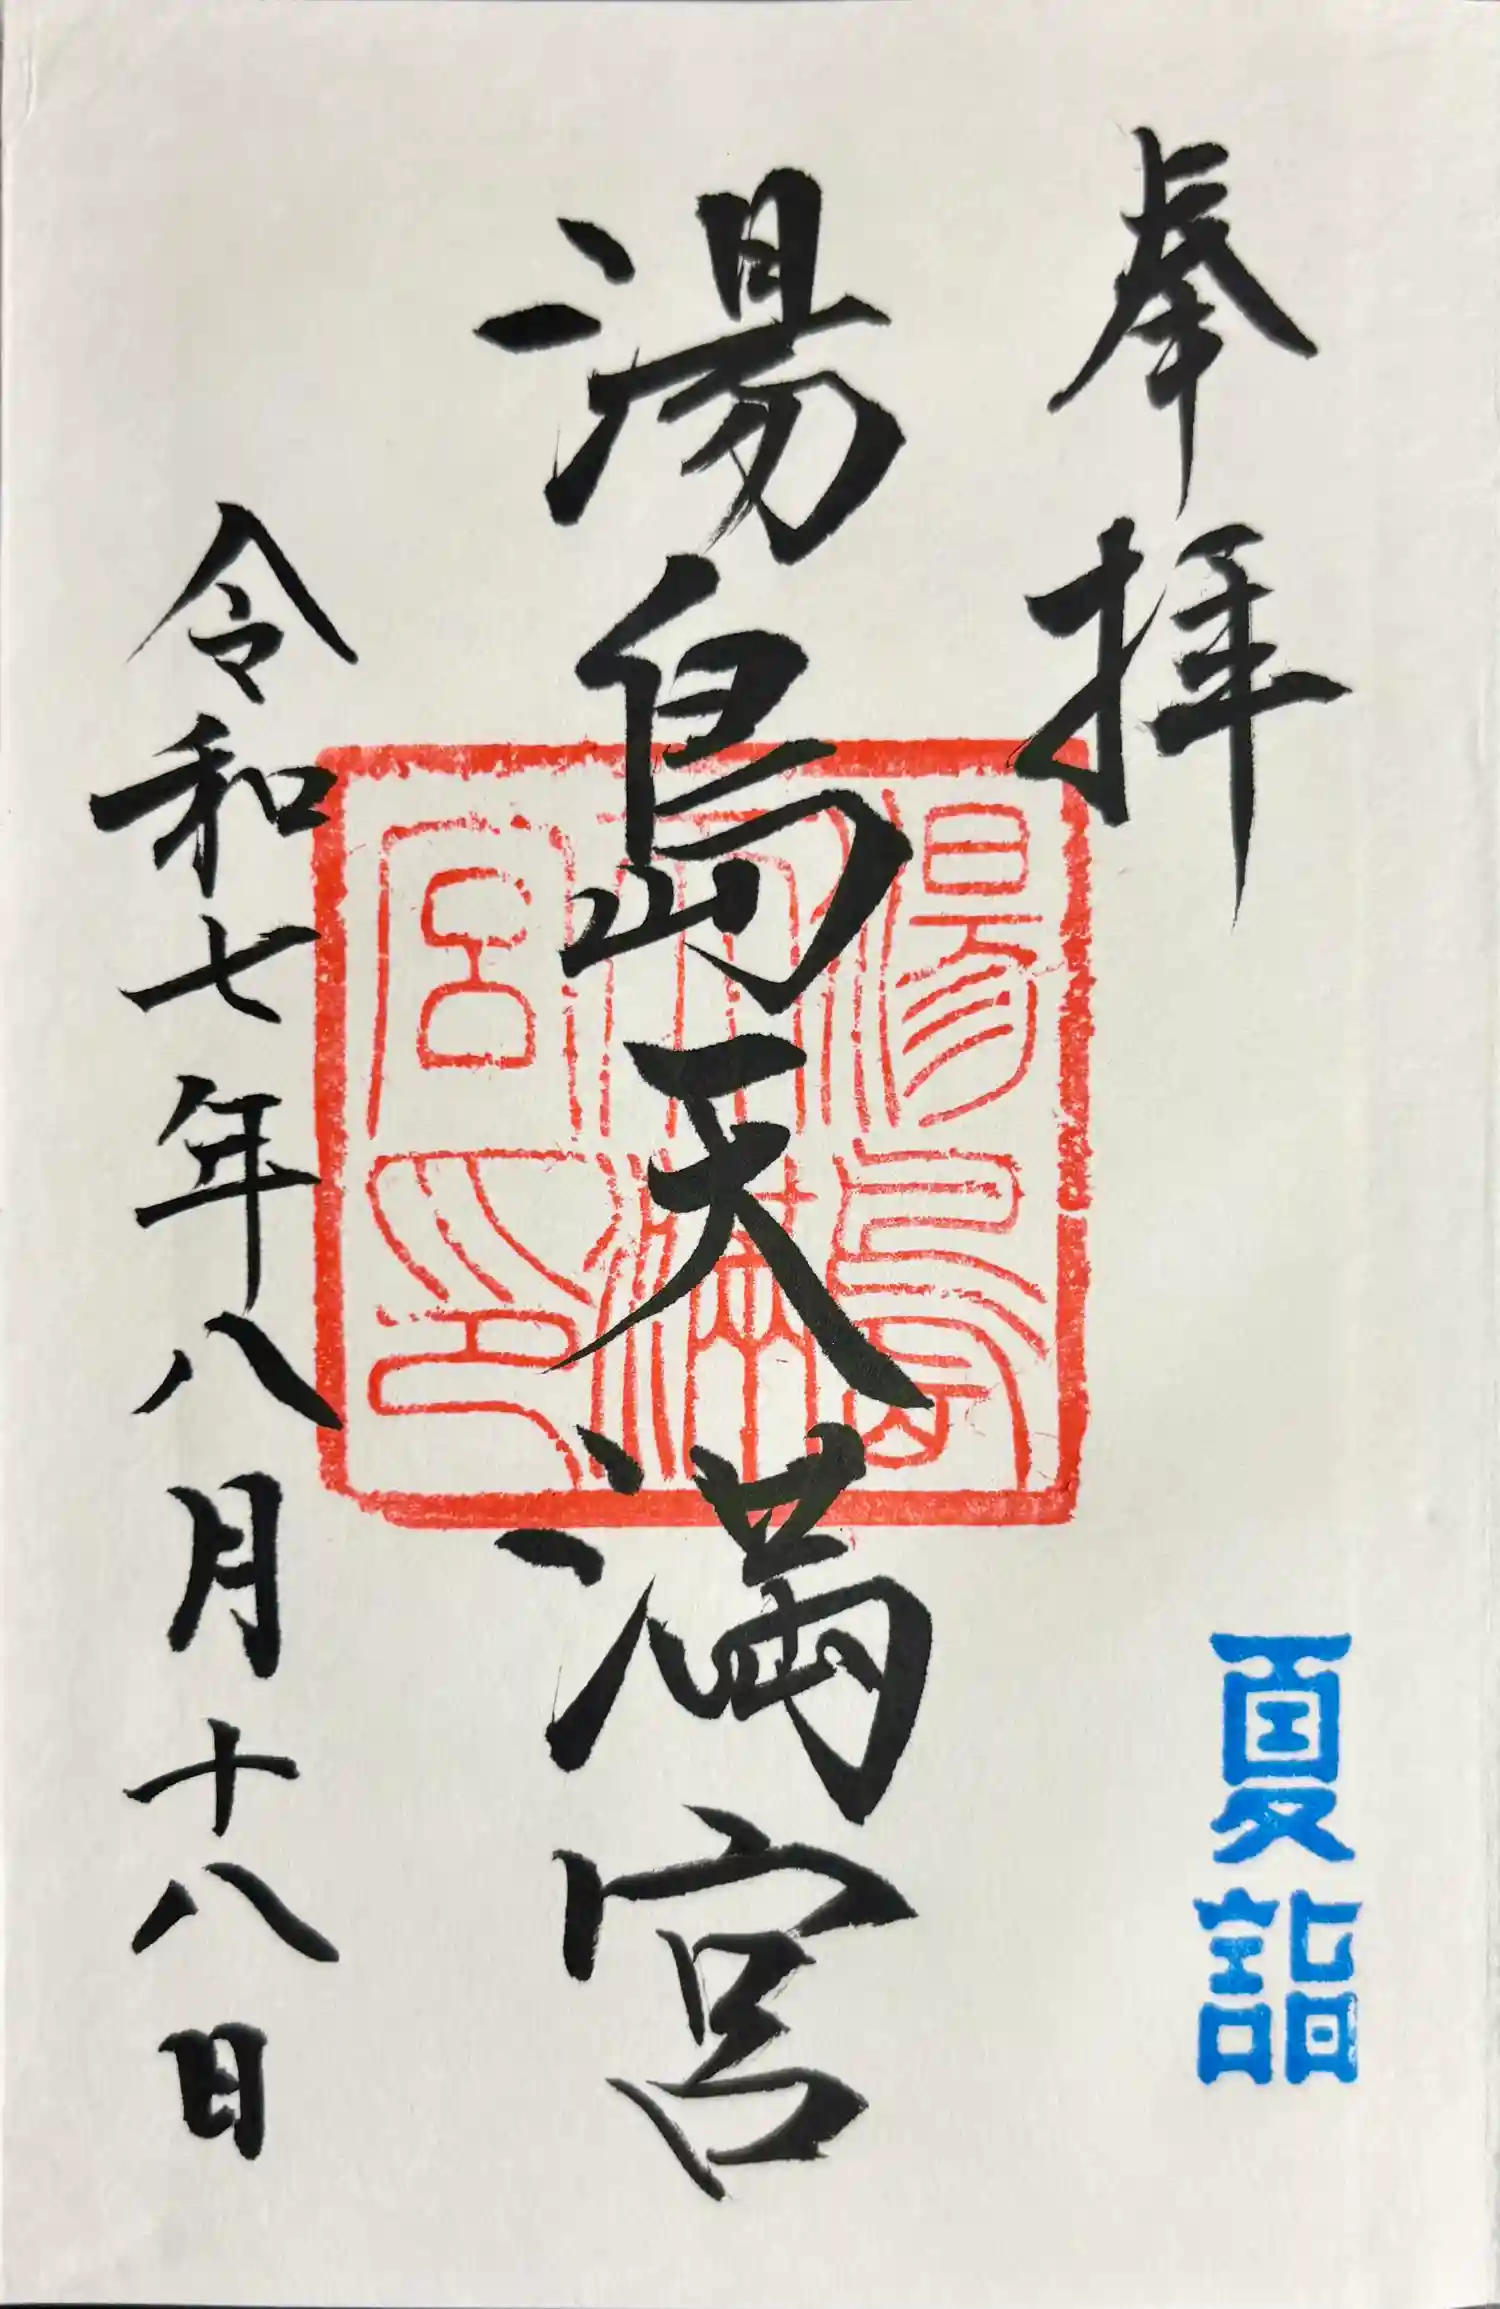 奉拝
夏詣
湯島天満宮
湯島天満宮印
令和七年八月十八日